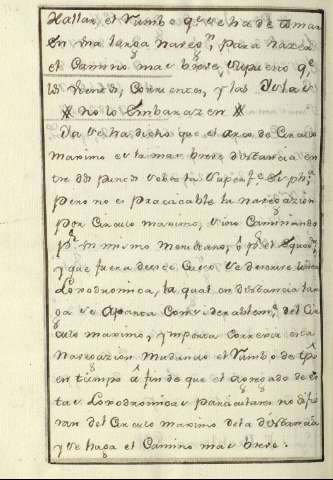 Hallar el Rumbo qe. se ha de tomar
En una larga navegn. para hazer
el Camino mas breve, supuesto qe.
los vientos, Corrientes, y las Yslas
no lo Embarazen
Ya se ha dicho que el arco de Circulo
Maximo es la mas breve distancia en
tre dos puntos sobre la superfe.
pero no es practicable la navegazion
por Circulo maximo, sino Caminando
pr. un mismo Meridiano, o pr. el Equor.
y que fuera de este Caso, se describe una
Loxodromica, la qual en distancia lar
ga se aparta Considerablemte. del Cir
culo maximo, y importa Correxir esta
Navegazion Mudando el Rumbo de tpo.
en tiempo â fin de que el agregado de es
tas Loxodromicas particulares no difie
ran del Circulo maximo de la distancia
y se haga el Camino mas breve.